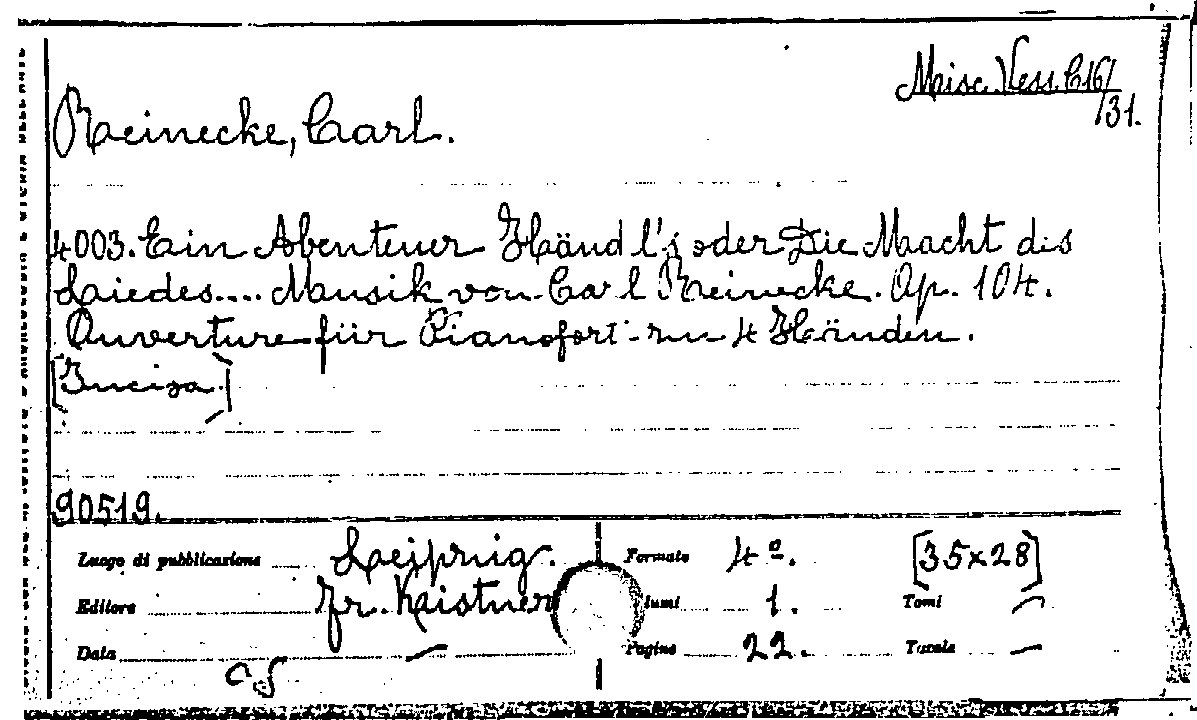 Misc. Vess. C16/
/31.
Reinecke, Carl.
4003. Ein Abenteuer Händl's oder Die Macht des
Liedes.... Musik von Carl Reinecke. Op. 104.
Ouverture für Pianoforte zu 4 Händen.
[Incisa.]
90519.
Luogo di pubblicazione Leipzig. Formato 4º. [35x28]
Editore Fr. Kistner lumi 1. Tomi —
Data — Pagine 22. Tavole —